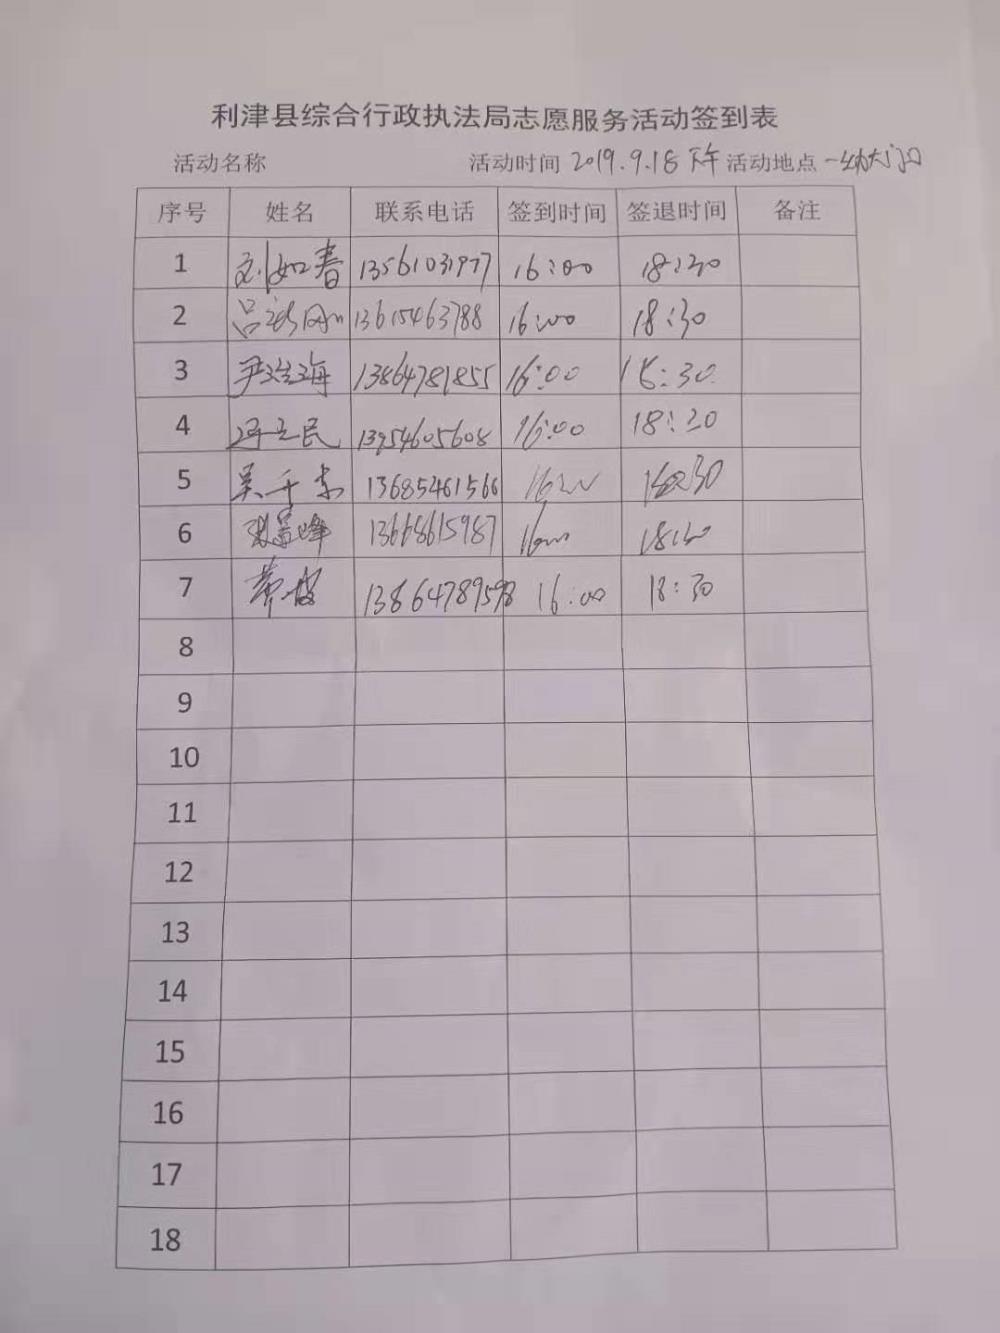 利津县综合行政执法局志愿服务活动签到表
活动名称 活动时间 2019.9.18 下午 活动地点 一幼大门口
序号 姓名 联系电话 签到时间 签退时间 备注
1 刘如春 13561031977 16:00 18:30
2 吕 13615463788 16:00 18:30
3 尹 海 13864781855 16:00 18:30
4 冯立民 13954605608 16:00 18:30
5 吴 13685461566 16:00 18:30
6 张 峰 13668615987 16:00 18:30
7 13864789598 16:00 18:30
8
9
10
11
12
13
14
15
16
17
18